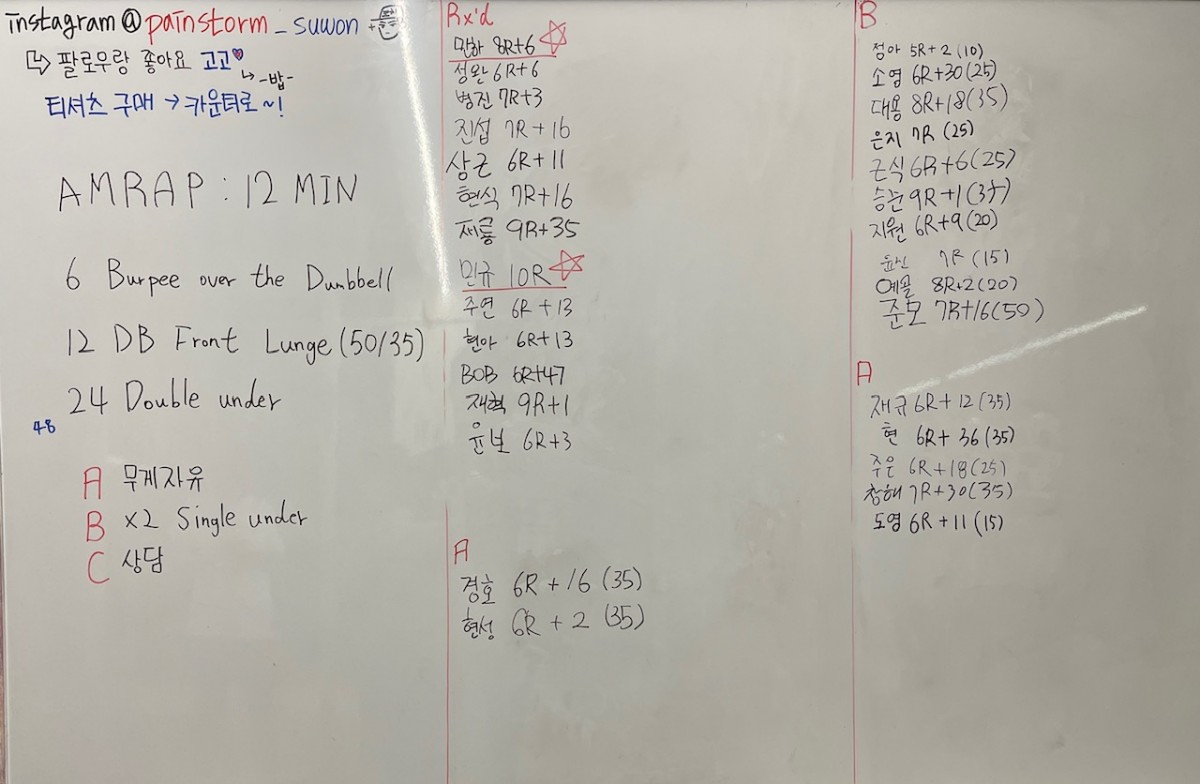 instagram@painstorm_suwon
팔로우랑 좋아요 고고♥
-밥-
티셔츠 구매 → 카운터로~!
AMRAP : 12 MIN
6 Burpee over the Dumbbell
12 DB Front Lunge (50/35)
24 Double under
48
A 무게자유
B x2 Single under
C 상담
Rx'd
민하 8R+6
성완 6R+6
병진 7R+3
진섭 7R+16
상근 6R+11
현식 7R+16
제룡 9R+35
민규 10R
주연 6R+13
현아 6R+13
BOB 6R+47
재혁 9R+1
윤보 6R+3
A
경호 6R+16 (35)
현성 6R+2 (35)
B
정아 5R+2 (10)
소영 6R+30 (25)
대용 8R+18 (35)
은지 7R (25)
근식 6R+6 (25)
승는 9R+1 (35)
지원 6R+9 (20)
윤신 7R (15)
예몰 8R+2 (20)
준모 7R+16 (50)
A
재규 6R+12 (35)
현 6R+36 (35)
주은 6R+18 (25)
창해 7R+30 (35)
도영 6R+11 (15)